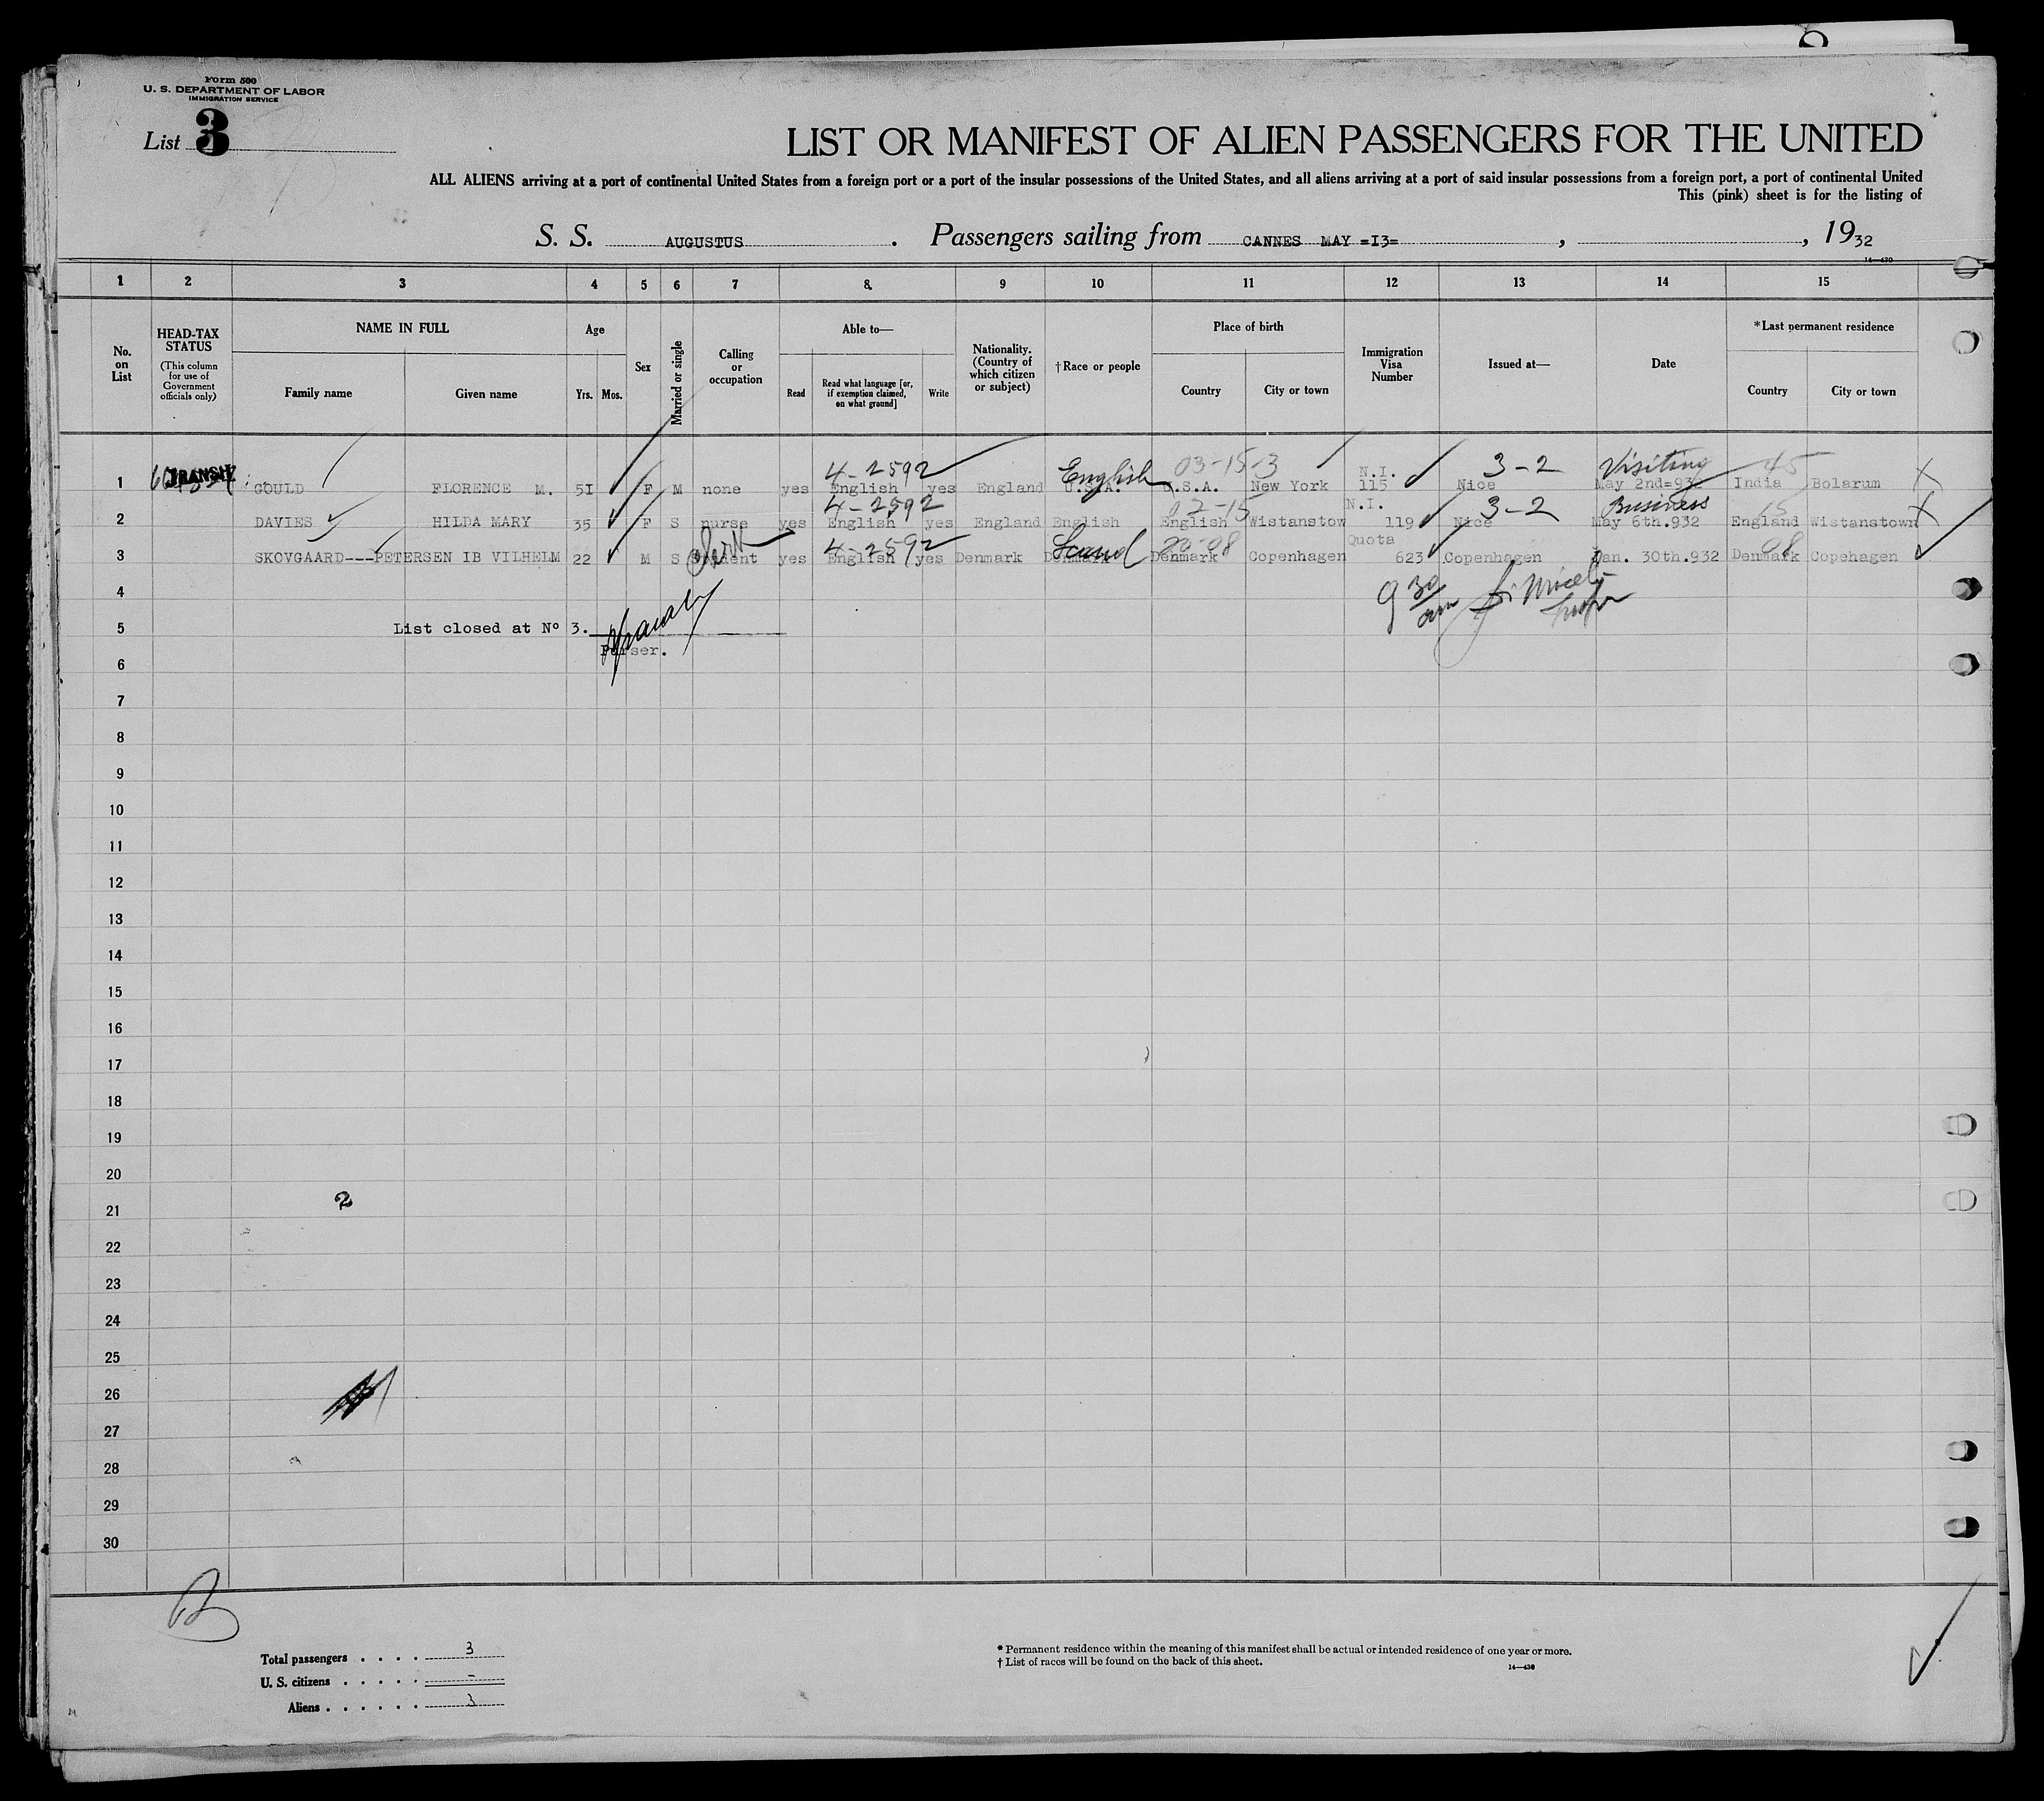 Form 500
U. S. DEPARTMENT OF LABOR
IMMIGRATION SERVICE
List 3
LIST OR MANIFEST OF ALIEN PASSENGERS FOR THE UNITED
ALL ALIENS arriving at a port of continental United States from a foreign port or a port of the insular possessions of the United States, and all aliens arriving at a port of said insular possessions from a foreign port, a port of continental United
This (pink) sheet is for the listing of
S. S. AUGUSTUS. Passengers sailing from CANNES MAY =I3= , , 1932
14—430
1 2 3 4 5 6 7 8. 9 10 11 12 13 14 15
No. on List
HEAD-TAX STATUS (This column for use of Government officials only)
NAME IN FULL
Family name Given name
Age
Yrs. Mos.
Sex
Married or single
Calling or occupation
Able to—
Read Read what language [or, if exemption claimed, on what ground] Write
Nationality. (Country of which citizen or subject)
†Race or people
Place of birth
Country City or town
Immigration Visa Number
Issued at—
Date
*Last permanent residence
Country City or town
4-2592 English 03-15-3 N.I. 3-2 Visiting 45
1 TRANSIT GOULD FLORENCE M. 5I F M none yes English yes England U.S.A. U.S.A. New York 115 Nice May 2nd=932 India Bolarum
4-2592 02-15 N.I. 3-2 Business 15
2 DAVIES HILDA MARY 35 F S nurse yes English yes England English English Wistanstow 119 Nice May 6th.932 England Wistanstown
Clerk 4-2592 Scand 20-08 Quota 08
3 SKOVGAARD---PETERSEN IB VILHELM 22 M S student yes English yes Denmark Denmark Denmark Copenhagen 623 Copenhagen Jan. 30th.932 Denmark Copehagen
4 9 30 am
5 List closed at Nº 3.
Purser.
6
7
8
9
10
11
12
13
14
15
16
17
18
19
20
2
21
22
23
24
25
26
27
28
29
30
Total passengers . . . . 3
U. S. citizens . . . . . -
Aliens . . . . . . 3
* Permanent residence within the meaning of this manifest shall be actual or intended residence of one year or more.
† List of races will be found on the back of this sheet.
14—430